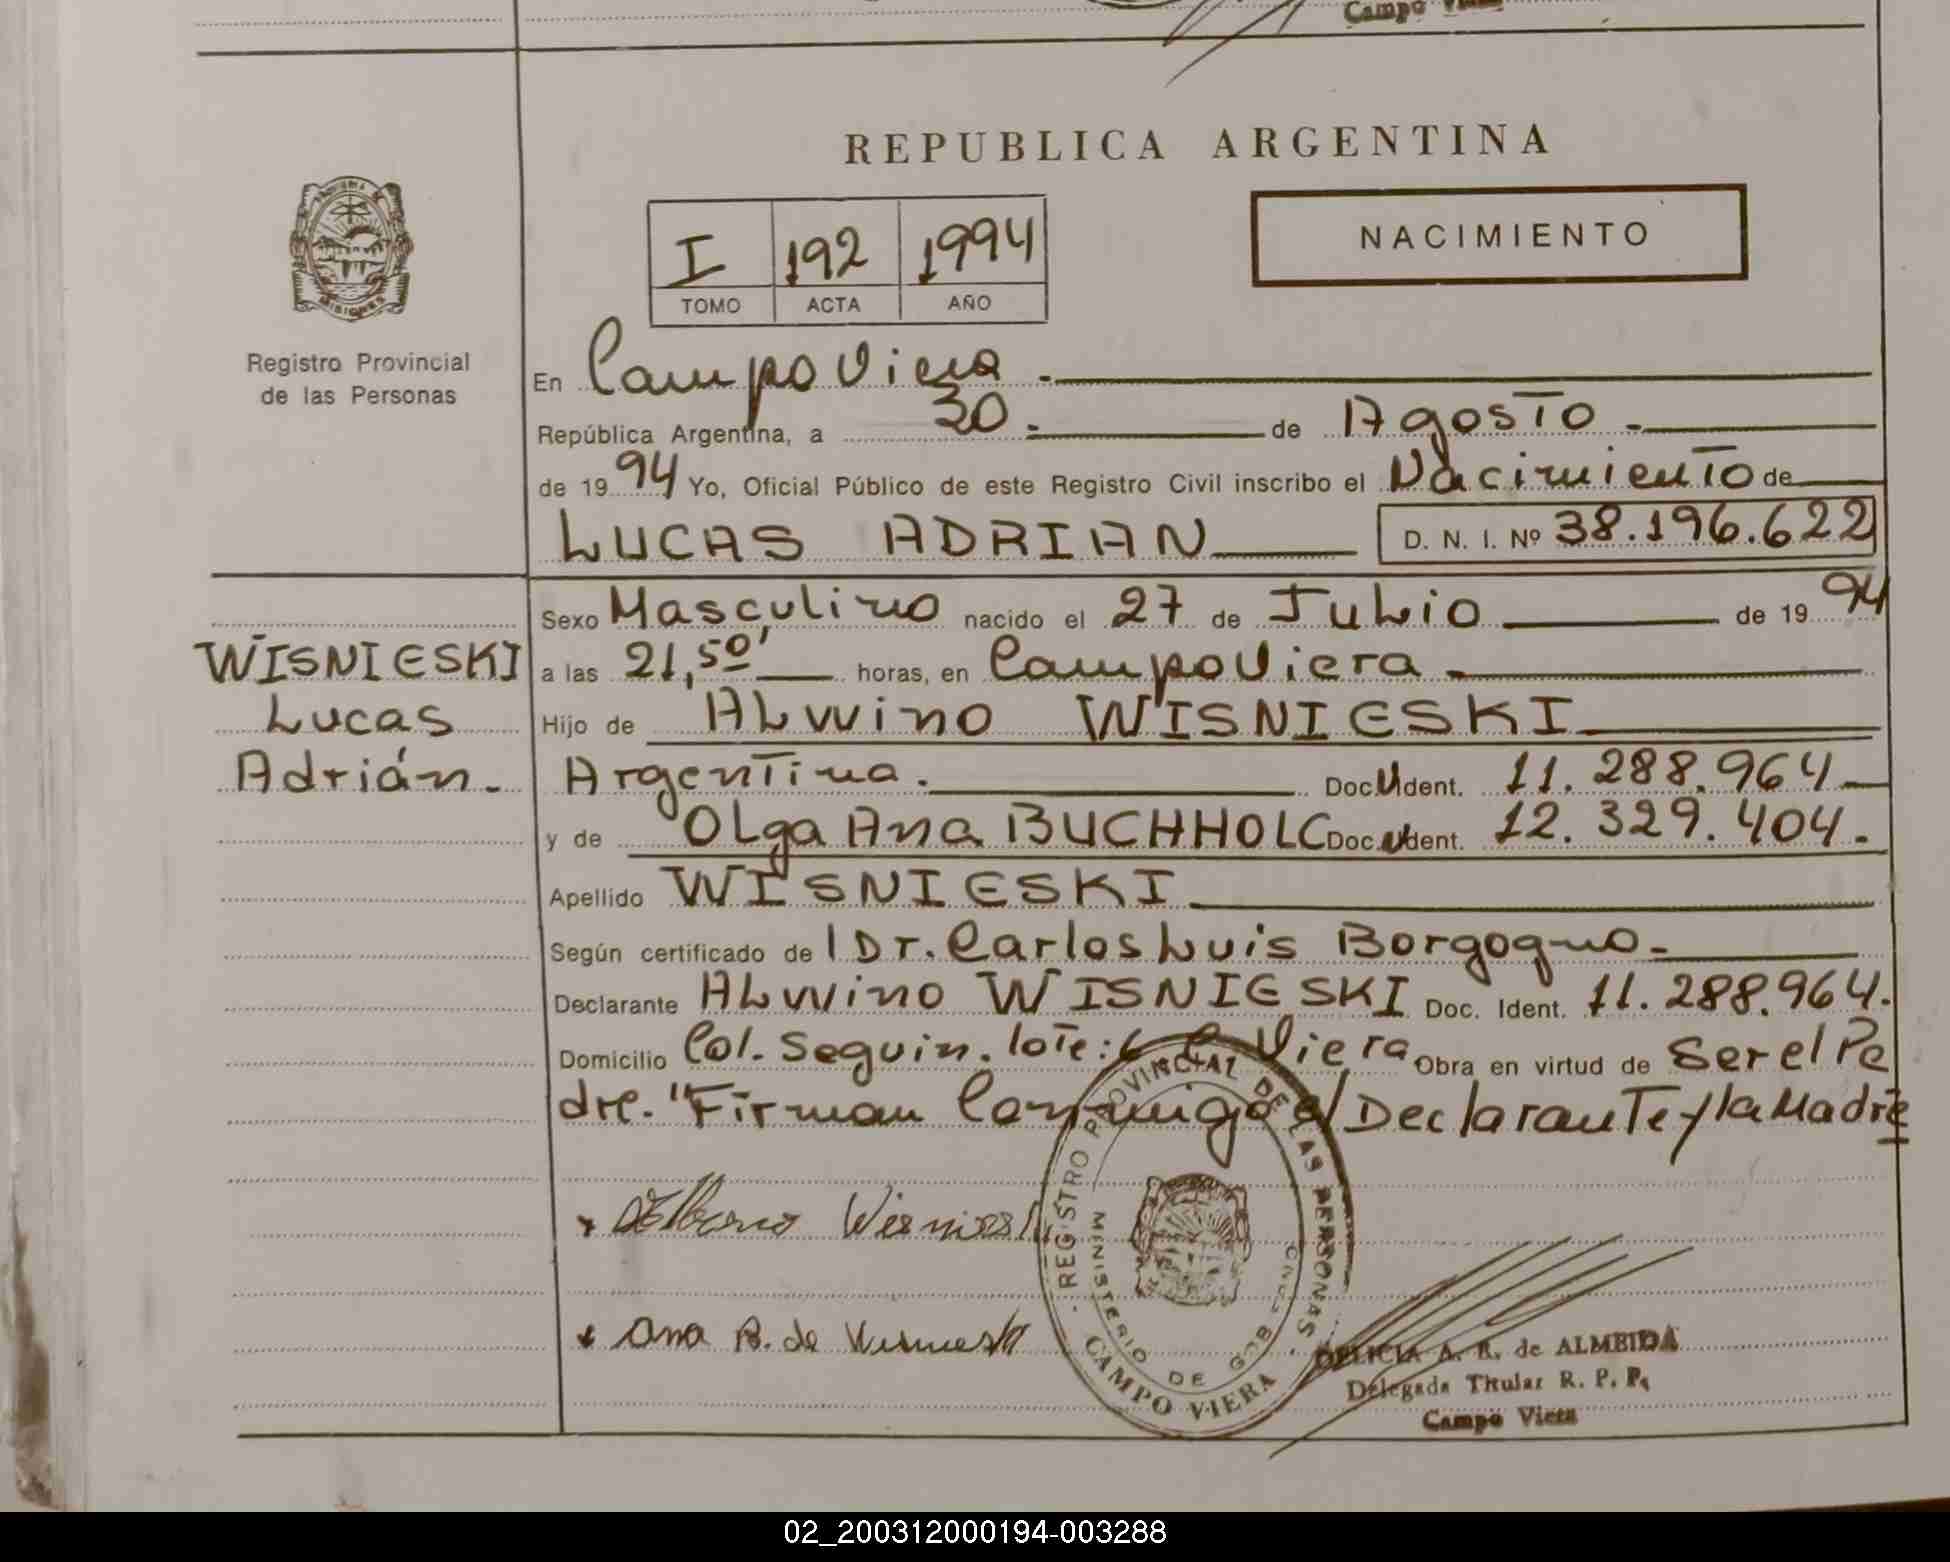 Campo Viera
REPUBLICA ARGENTINA
I 192 1994
TOMO ACTA AÑO
NACIMIENTO
MISIONES
Registro Provincial
de las Personas
En Campo Viera
República Argentina, a 30 de Agosto
de 19 94 Yo, Oficial Público de este Registro Civil inscribo el Nacimiento de
LUCAS ADRIAN D. N. I. Nº 38.196.622
WISNIESKI
Lucas
Adrián.
Sexo Masculino nacido el 27 de Julio de 19 94
a las 21,50' horas, en Campo Viera
Hijo de ALwino WISNIESKI
Argentina. Doc. Ident. 11.288.964
y de OLga Ana BUCHHOLC Doc. Ident. 12.329.404.
Apellido WISNIESKI
Según certificado de Dr. Carlos Luis Borgogno
Declarante ALwino WISNIESKI Doc. Ident. 11.288.964.
Domicilio Col. Seguin. lote: 6 C. Viera Obra en virtud de Ser el Pa
dre. "Firman Conmigo el Declarante y la Madre
Ana B. de
REGISTRO PROVINCIAL DE LAS PERSONAS
MINISTERIO DE GOB
CAMPO VIERA
DELICIA A. R. de ALMEIDA
Delegada Titular R. P. P.
Campo Viera
02_200312000194-003288